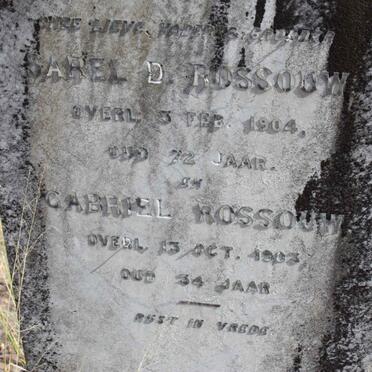 ONZE LIEVE
SAREL D. ROSSOUW
OVERL. 3 FEB. 1904,
OUD 72 JAAR.
EN
GABRIEL ROSSOUW
OVERL. 13 OCT. 1903,
OUD 34 JAAR
RUST IN VREDE